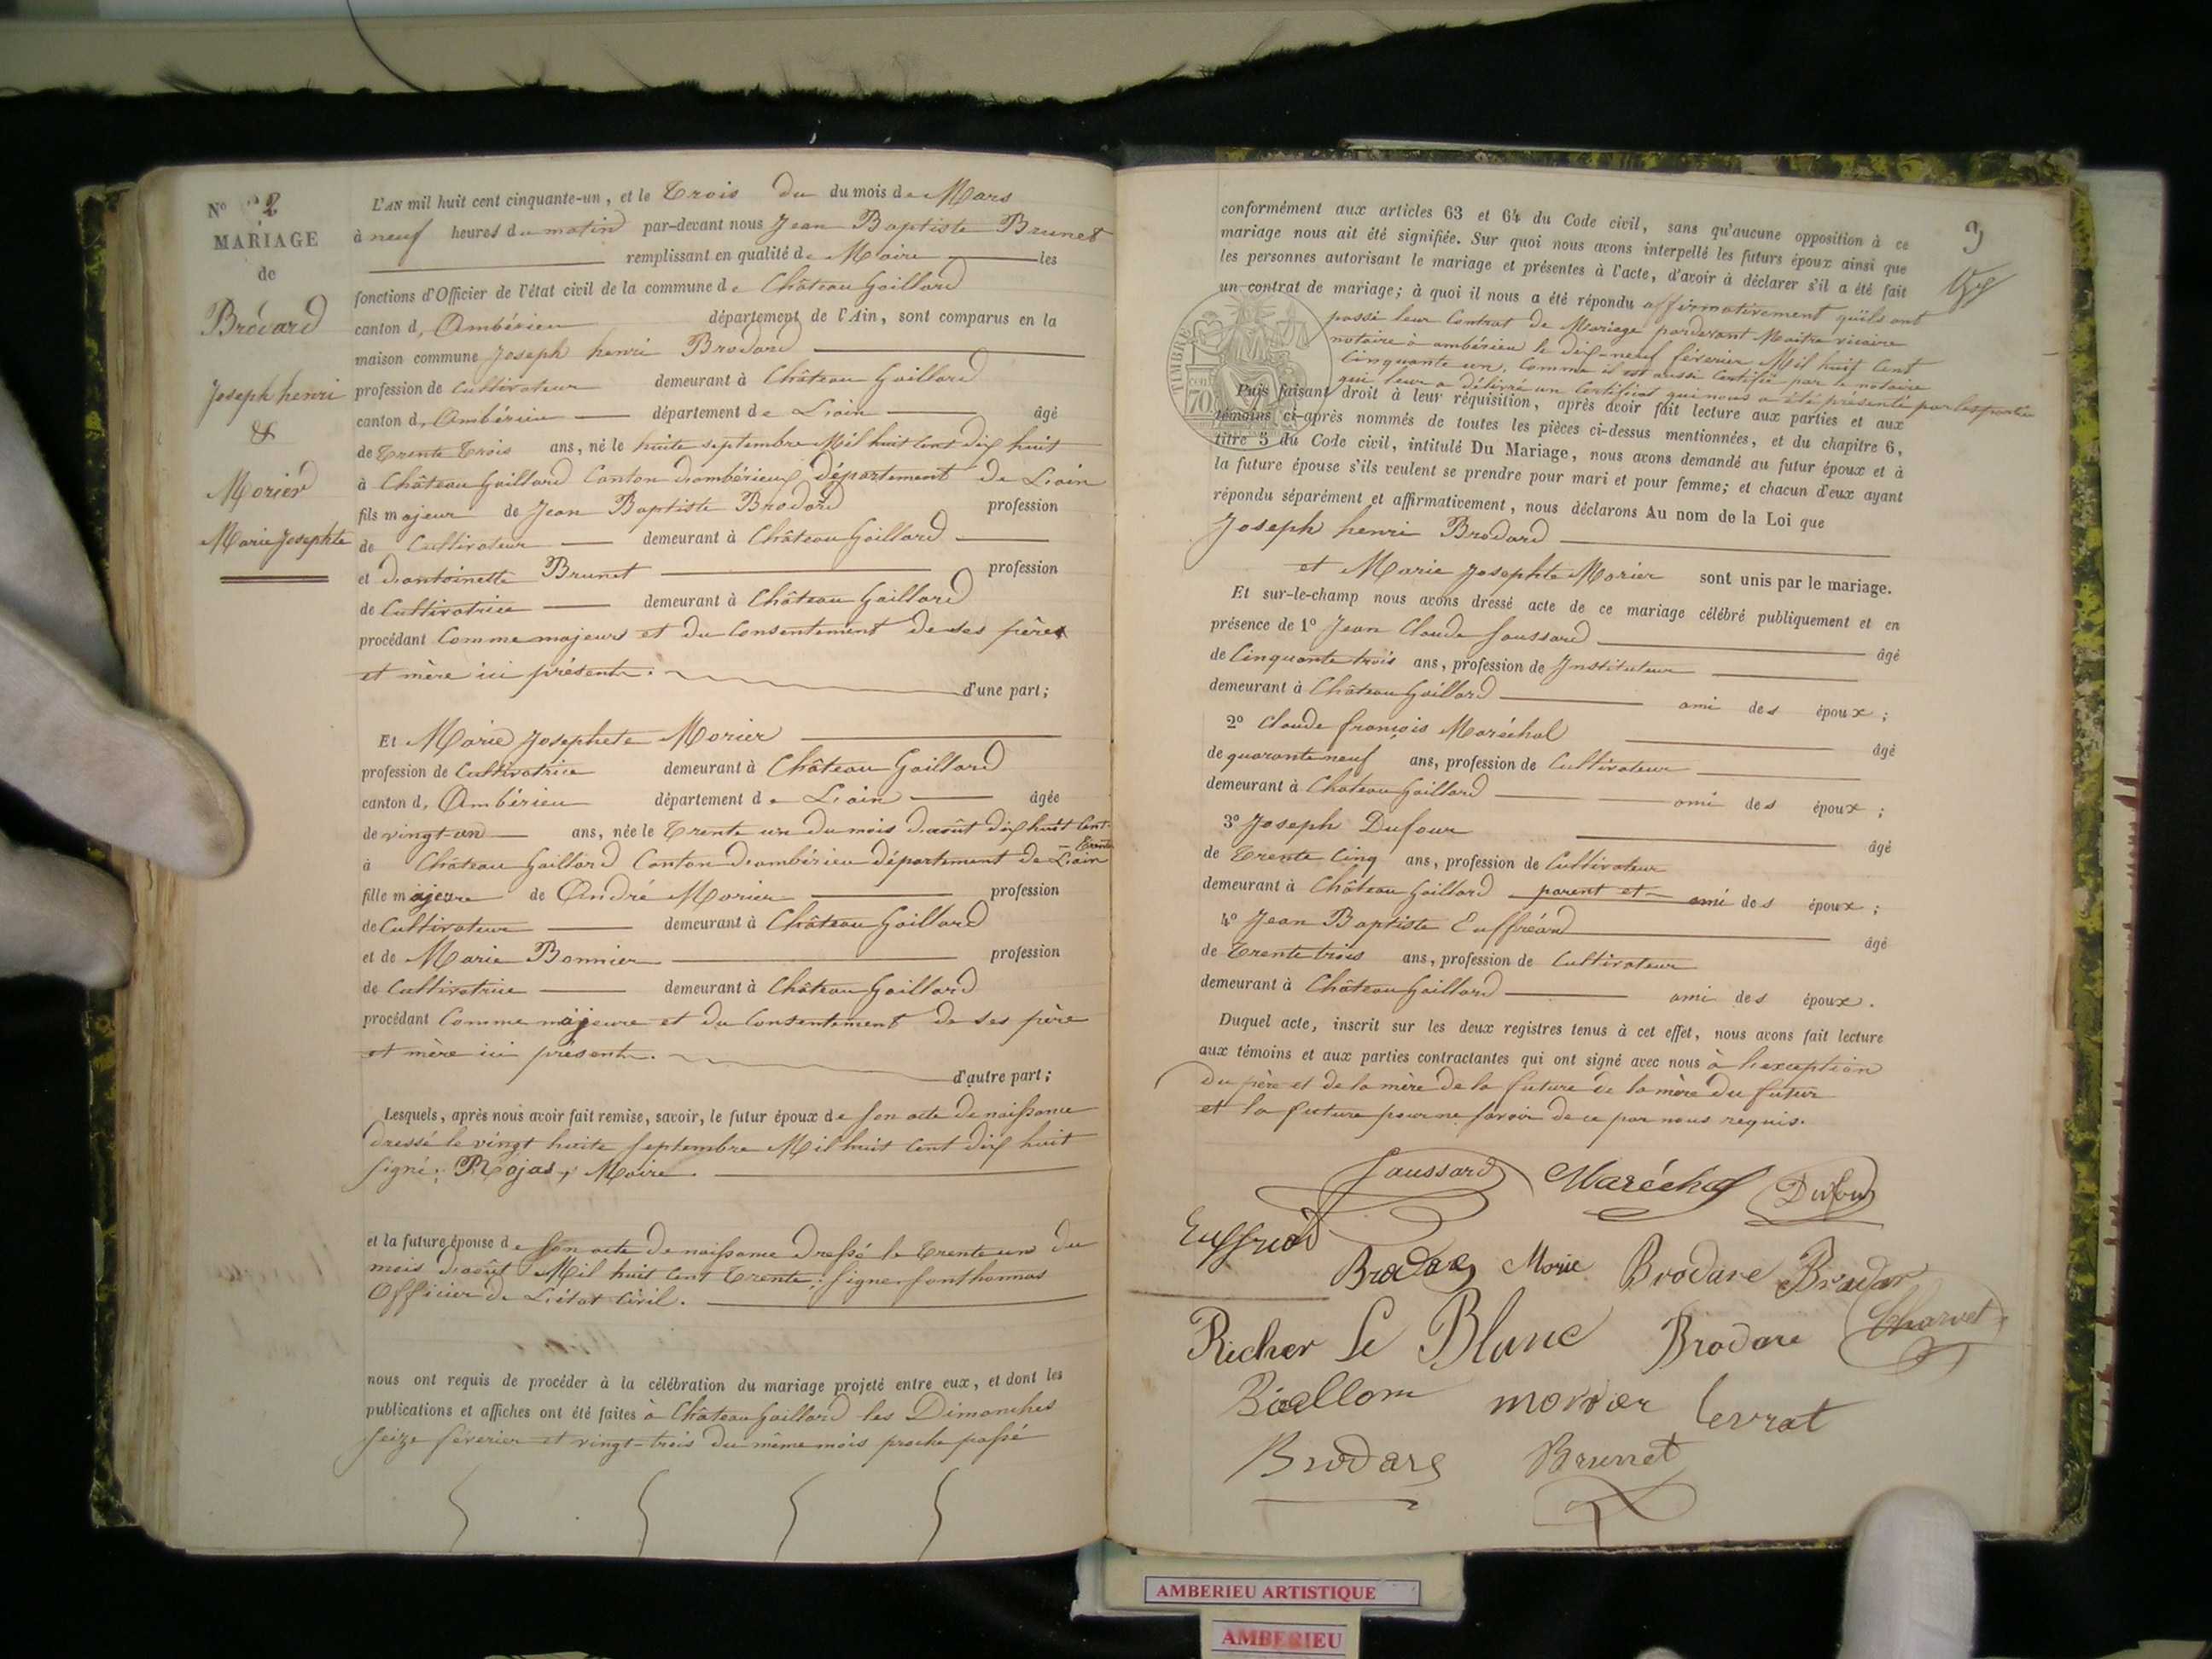 N° 2
MARIAGE
de
Brévard
Joseph henri
&
Morier
Marie Josephte
L'AN mil huit cent cinquante-un, et le Trois du du mois de Mars
à neuf heures du matin par-devant nous Jean Baptiste Brunet
remplissant en qualité de Maire les
fonctions d'Officier de l'état civil de la commune de Château Gaillard
canton d, Ambérieu département de l'Ain, sont comparus en la
maison commune Joseph henri Brodard
profession de Cultivateur demeurant à Château Gaillard
canton d, Ambérieu département de L'ain âgé
de Trente Trois ans, né le huite septembre Mil huit Cent dix huit
à Château Gaillard Canton d'ambérieux département de L'ain
fils majeur de Jean Baptiste Brodard profession
de Cultivateur demeurant à Château Gaillard
et d'antoinette Brunet profession
de Cultivatrice demeurant à Château Gaillard
procédant Comme majeurs et du Consentement de ses père
et mère ici présents. d'une part;
Et Marie Josephete Morier
profession de Cultivatrice demeurant à Château Gaillard
canton d, Ambérieu département de L'ain âgée
de vingt-un ans, née le Trente un du mois d'août dix huit Cent
Trente
à Château Gaillard Canton d'ambérieu département de L'ain
fille majeure de André Morier profession
de Cultivateur demeurant à Château Gaillard
et de Marie Bonnier profession
de Cultivatrice demeurant à Château Gaillard
procédant Comme majeure et du Consentement de ses père
et mère ici présents. d'autre part;
Lesquels, après nous avoir fait remise, savoir, le futur époux de son acte de naissance
dressé le vingt huite septembre Mil huit Cent dix huit
signé: Maire
et la future épouse de son acte de naissance dressé le Trente un du
mois d'août Mil huit Cent Trente: signer fonthannas
Officier de L'état Civil.
nous ont requis de procéder à la célébration du mariage projeté entre eux, et dont les
publications et affiches ont été faites à Château Gaillard les Dimanches
seize féverier et vingt-trois du même mois proche passé
3
conformément aux articles 63 et 64 du Code civil, sans qu'aucune opposition à ce
mariage nous ait été signifiée. Sur quoi nous avons interpellé les futurs époux ainsi que
les personnes autorisant le mariage et présentes à l'acte, d'avoir à déclarer s'il a été fait
un contrat de mariage; à quoi il nous a été répondu affirmativement qu'ils ont
passé leur Contrat de Mariage pardevant Maitre vicaire
notaire à ambérieu le dix-neuf féverier Mil huit Cent
Cinquante un, Comme il est aussi Certifié par le notaire
qui leur a délivré un Certificat qui nous a été présenté par les parties
TIMBRE
70
Puis faisant droit à leur réquisition, après avoir fait lecture aux parties et aux
témoins ci-après nommés de toutes les pièces ci-dessus mentionnées, et du chapitre 6,
titre 5 du Code civil, intitulé Du Mariage, nous avons demandé au futur époux et à
la future épouse s'ils veulent se prendre pour mari et pour femme; et chacun d'eux ayant
répondu séparément et affirmativement, nous déclarons Au nom de la Loi que
Joseph henri Brodard
et Marie Josephte Morier sont unis par le mariage.
Et sur-le-champ nous avons dressé acte de ce mariage célébré publiquement et en
présence de 1° Jean Claude Saussard âgé
de Cinquante trois ans, profession de Instituteur
demeurant à Château Gaillard ami des époux;
2° Claude françois Maréchal âgé
de quarante neuf ans, profession de Cultivateur
demeurant à Chateau Gaillard ami des époux;
3° Joseph Dufour âgé
de Trente Cinq ans, profession de Cultivateur
demeurant à Château Gaillard parent et ami des époux;
4° Jean Baptiste Euffréard âgé
de Trente trois ans, profession de Cultivateur
demeurant à Château Gaillard ami des époux.
Duquel acte, inscrit sur les deux registres tenus à cet effet, nous avons fait lecture
aux témoins et aux parties contractantes qui ont signé avec nous à L'exception
du père et de la mère de la future de la mère du futur
et la future pour ne savoir de ce par nous requis.
Saussard Maréchal Dufour
Brodard Morie Brodare Brodar
Richer Le Blanc Brodare Charvet
morier Levrat
Brodare Brunet
AMBERIEU ARTISTIQUE
AMBERIEU